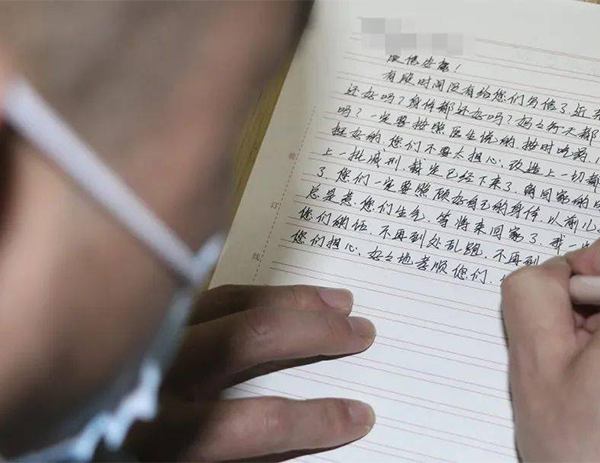 见信安好!
有段时间没有给您们写信了近来
还好吗?身体都还好吗?每天都
吗?一定要按照医生说的按时吃药
挺好的,您们不要太担心,改造上一切都
上一批减刑裁定已经下来了离回家的
了,您们一定要照顾好自己的身体,以前儿
总是惹您们生气,等将来回家了,我一
您们的话,不再到处乱跑,不再
您们担心,好好地孝顺您们,